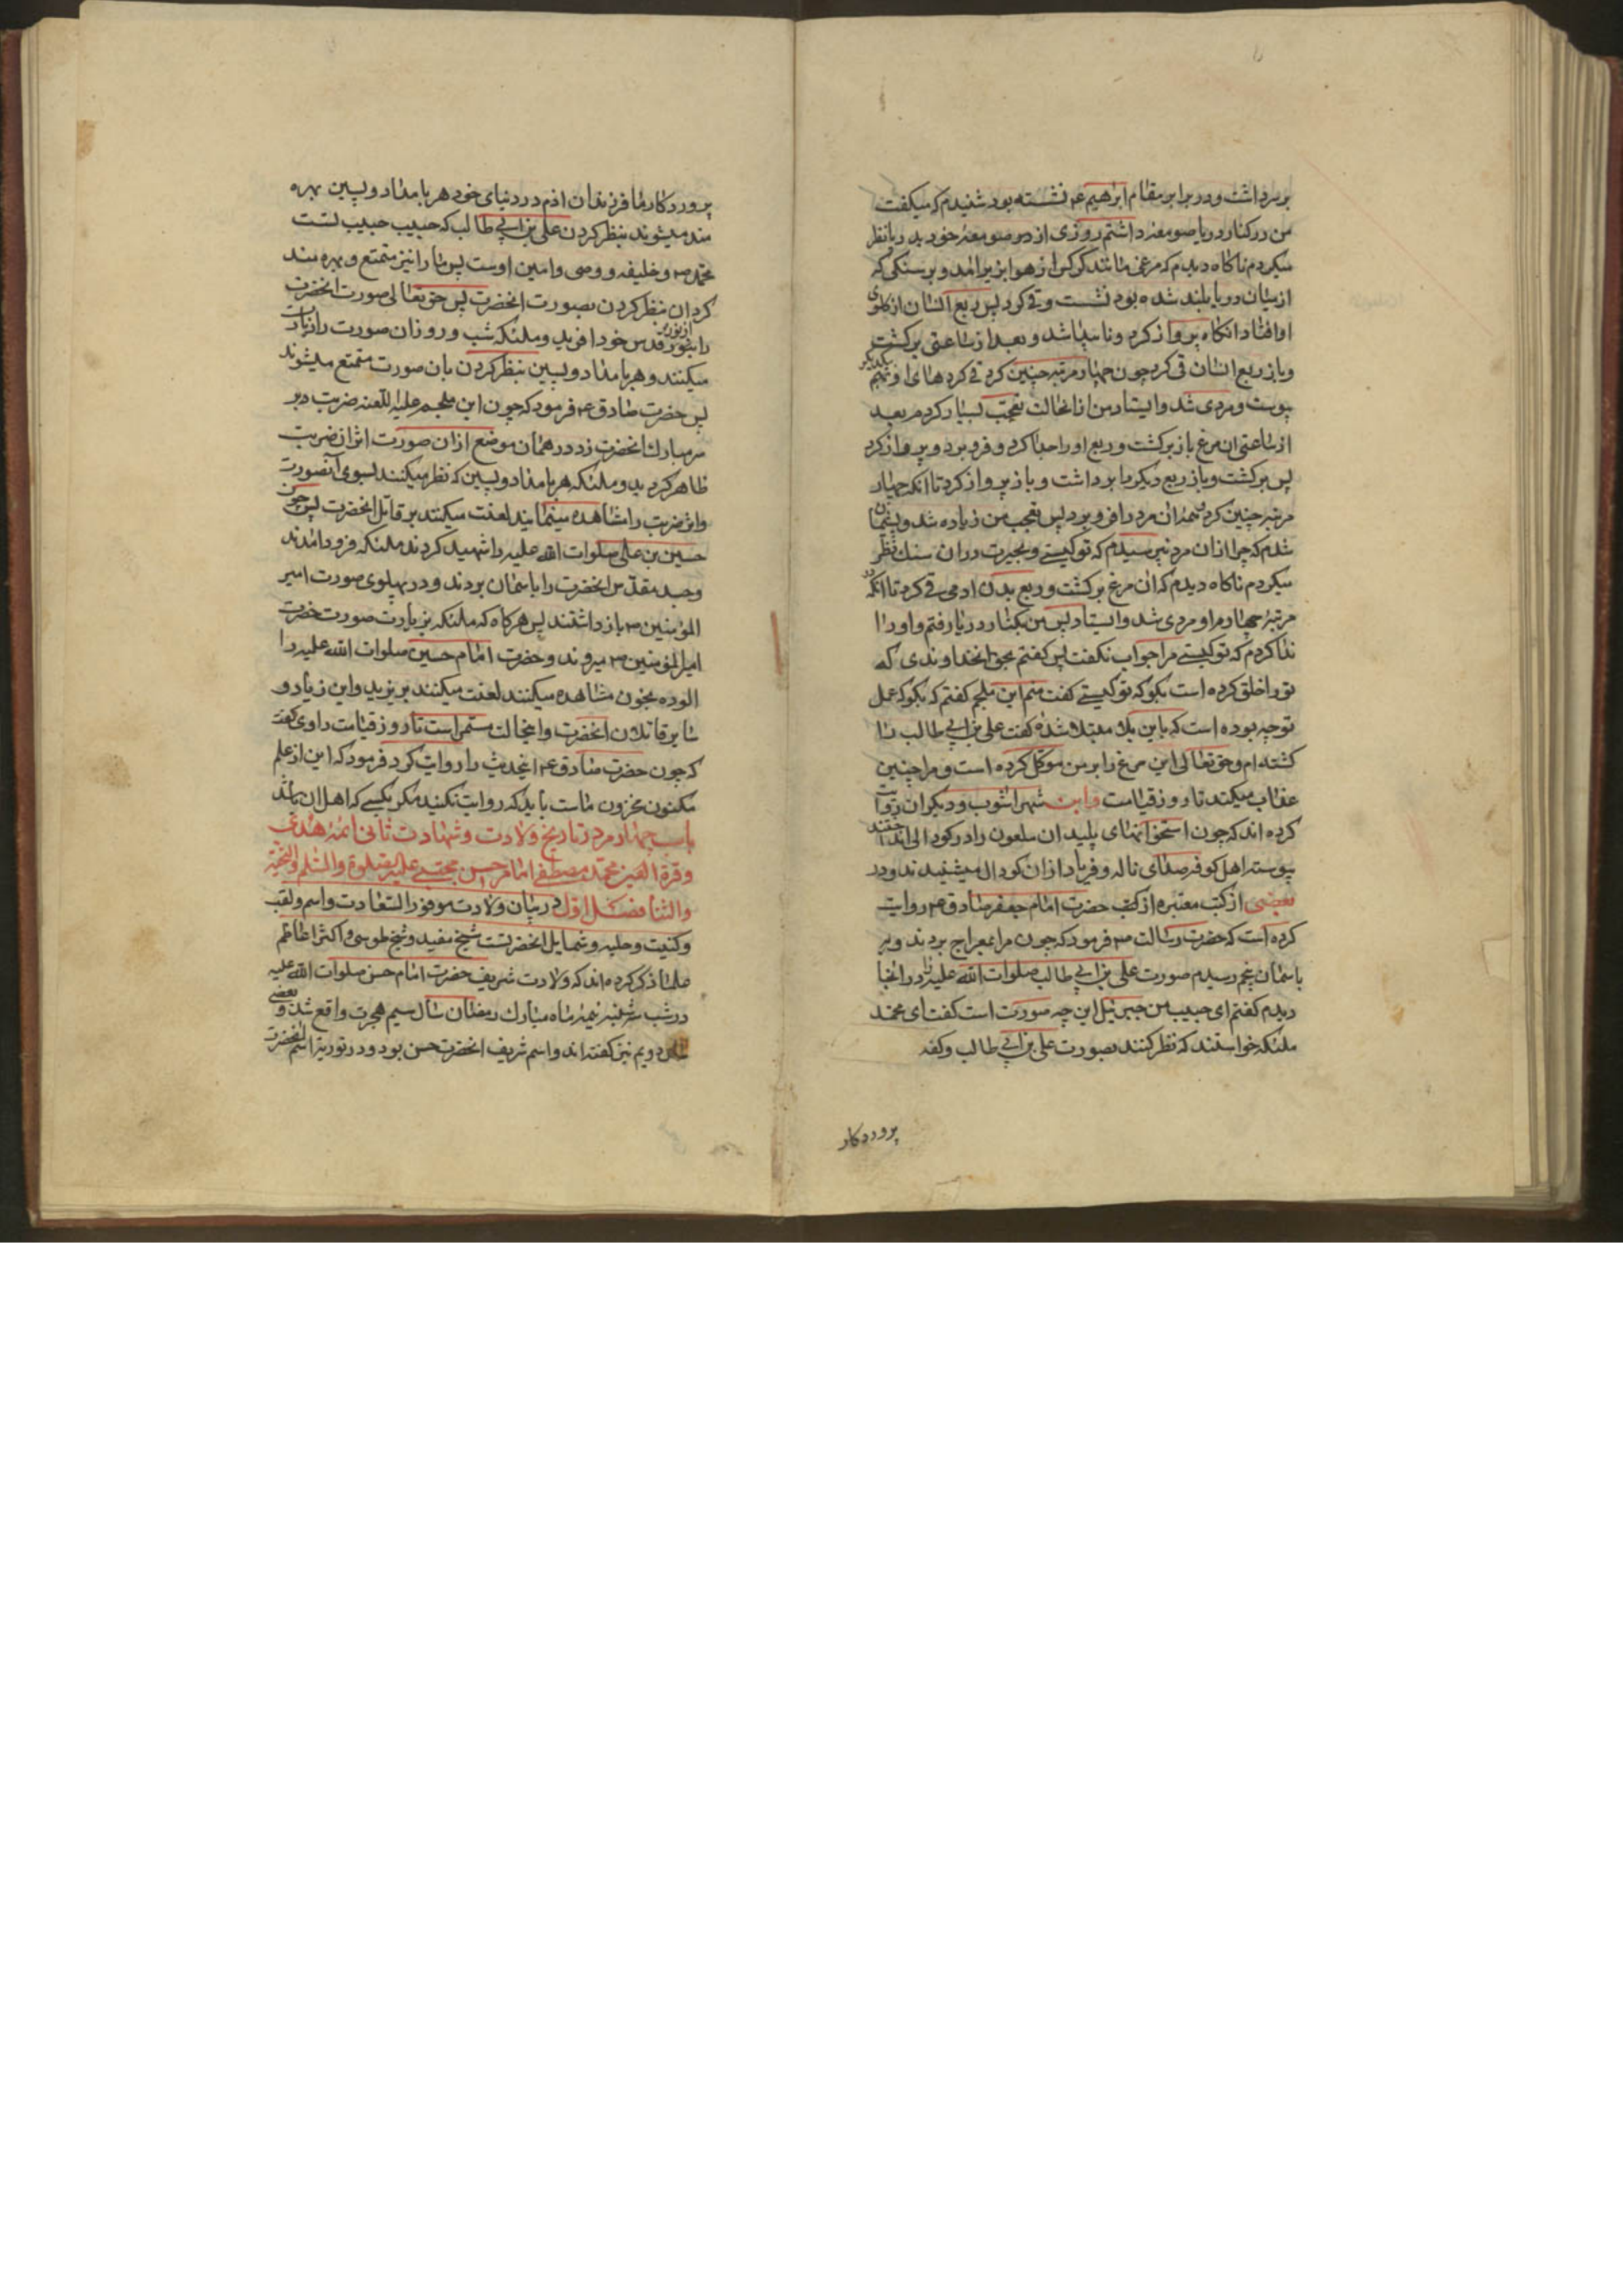 بر سر داشت و در برابر مقام ابراهیم ع نشسته بود شنیدم که میکفت
من در کنار دریا صومعهٔ داشتم روزی از در صومعهٔ خود بدریا نظر
میکردم ناکاه دیدم که مرغی مانند کرکس از هوا بزیر آمد و بر سنکی که
از میان دریا بلند شده بود نشست و قی کرد پس ربع انسان از کلوی
او افتاد انکاه پرواز کرد و ناپیدا شد و بعد از ساعتی برکشت
و باز ربع انسان قی کرد چون چهار مرتبه چنین کرد قی کردهای او بهم یکدیکر
پیوست و مردی شد و ایستاد من از انحالت تعجب بسیار کردم بعد
از ساعتی ان مرغ باز برکشت و ربع او را جدا کرد و فرو برد و پرواز کرد
پس برکشت و باز ربع دیکر را برداشت و باز پرواز کرد تا انکه چهار
مرتبه چنین کرد همه ان مرد را فرو برد پس تعجب من زیاده شد و پشیمان
شدم که چرا از ان مرد نپرسیدم که تو کیستی و بحیرت در ان سنك نظر
میکردم ناکاه دیدم که ان مرغ برکشت و ربع بدن ادمی قی کرد تا انکه در
مرتبهٔ چهارم او مردی شد و ایستاد پس من بکنار دریا رفتم و او را
ندا کردم که تو کیستی مرا جواب نکفت پس کفتم بحق انخداوندی که
تو را خلق کرده است بکو که تو کیستی کفت منم ابن ملجم کفتم که بکو که عمل
تو چه بوده است که باین بلا مبتلا شدهٔ کفت علی بن ابی طالب را
کشته ام و حق تعالی این مرغ را بر من موکل کرده است و مرا چنین
عذاب میکند تا روز قیامت و ابن شهر اشوب و دیکران روایت
کرده اند که چون استخوانهای پلید ان ملعون را در کودالی انداختند
پیوسته اهل کوفه صدای ناله و فریاد از ان کودال میشنیدند و در
بعضی از کتب معتبره از حضرت امام جعفر صادق ع روایت
کرده است که حضرت رسالت ص فرمود که چون مرا بمعراج بردند و بر
باسمان پنجم رسیدم صورت علی بن ابی طالب صلوات الله علیه را در انجا
دیدم کفتم ای حبیب من جبرئیل این چه صورت است کفت ای محمد
ملئکه خواستند که نظر کنند بصورت علی بن ابی طالب و کفتند
پروردکار
پروردکارما فرزندان ادم در دنیای خود هر بامداد و پسین بهره
مند میشوند بنظر کردن علی بن ابی طالب که حبیب حبیب تست
محمد ص و خلیفه و وصی و امین اوست پس ما را نیز متمتع و بهره مند
کردان بنظر کردن بصورت انحضرت پس حق تعالی صورت انحضرت
را از نور قدس خود افرید و ملئکه شب و روز ان صورت را زیارت
میکنند و هر بامداد و پسین بنظر کردن بان صورت متمتع میشوند
پس حضرت صادق ع فرمود که چون ابن ملجم علیه اللعنه ضربت بر
سر مبارك انحضرت زد در همان موضع از ان صورت اثر ان ضربت
ظاهر کردید و ملئکه هر بامداد و پسین که نظر میکنند بسوی آنصورت
و اثر ضربت را مشاهده مینمایند لعنت میکنند بر قاتل انحضرت پس چون
حسین بن علی صلوات الله علیه را شهید کردند ملئکه فرود امدند
و جسد مقدس انحضرت را باسمان بردند و در پهلوی صورت امیر
المؤمنین ص باز داشتند پس هر کاه که ملئکه بزیارت صورت حضرت
امیرالمؤمنین ص میروند و حضرت امام حسین صلوات الله علیه را
الوده بخون مشاهده میکنند لعنت میکنند بر یزید و ابن زیاد و
سایر قاتلان انحضرت و اینحالت مستمر است تا روز قیامت راوی کفت
که چون حضرت صادق ع اینحدیث را روایت کرد فرمود که این از علم
مکنون مخزون ماست باید که روایت نکنید مکر بکسی که اهل ان باشد
باب چهارم در تاریخ ولادت و شهادت ثانی ائمهٔ هدی
و قرة العین محمد مصطفی امام حسن مجتبی علیه الصلوة والسلم والتحیة
والثنا فصل اول در بیان ولادت موفور السعادت و اسم و لقب
و کنیت و حلیه و شمایل انحضرتست شیخ مفید و شیخ طوسی و اکثر اعاظم
علما ذکر کرده اند که ولادت شریف حضرت امام حسن صلوات الله علیه
در شب سه شنبه نیمهٔ ماه مبارك رمضان سال سیم هجرت واقع شد و بعضی
سال دویم نیز کفته اند و اسم شریف انحضرت حسن بود و در توریة اسم انحضرت